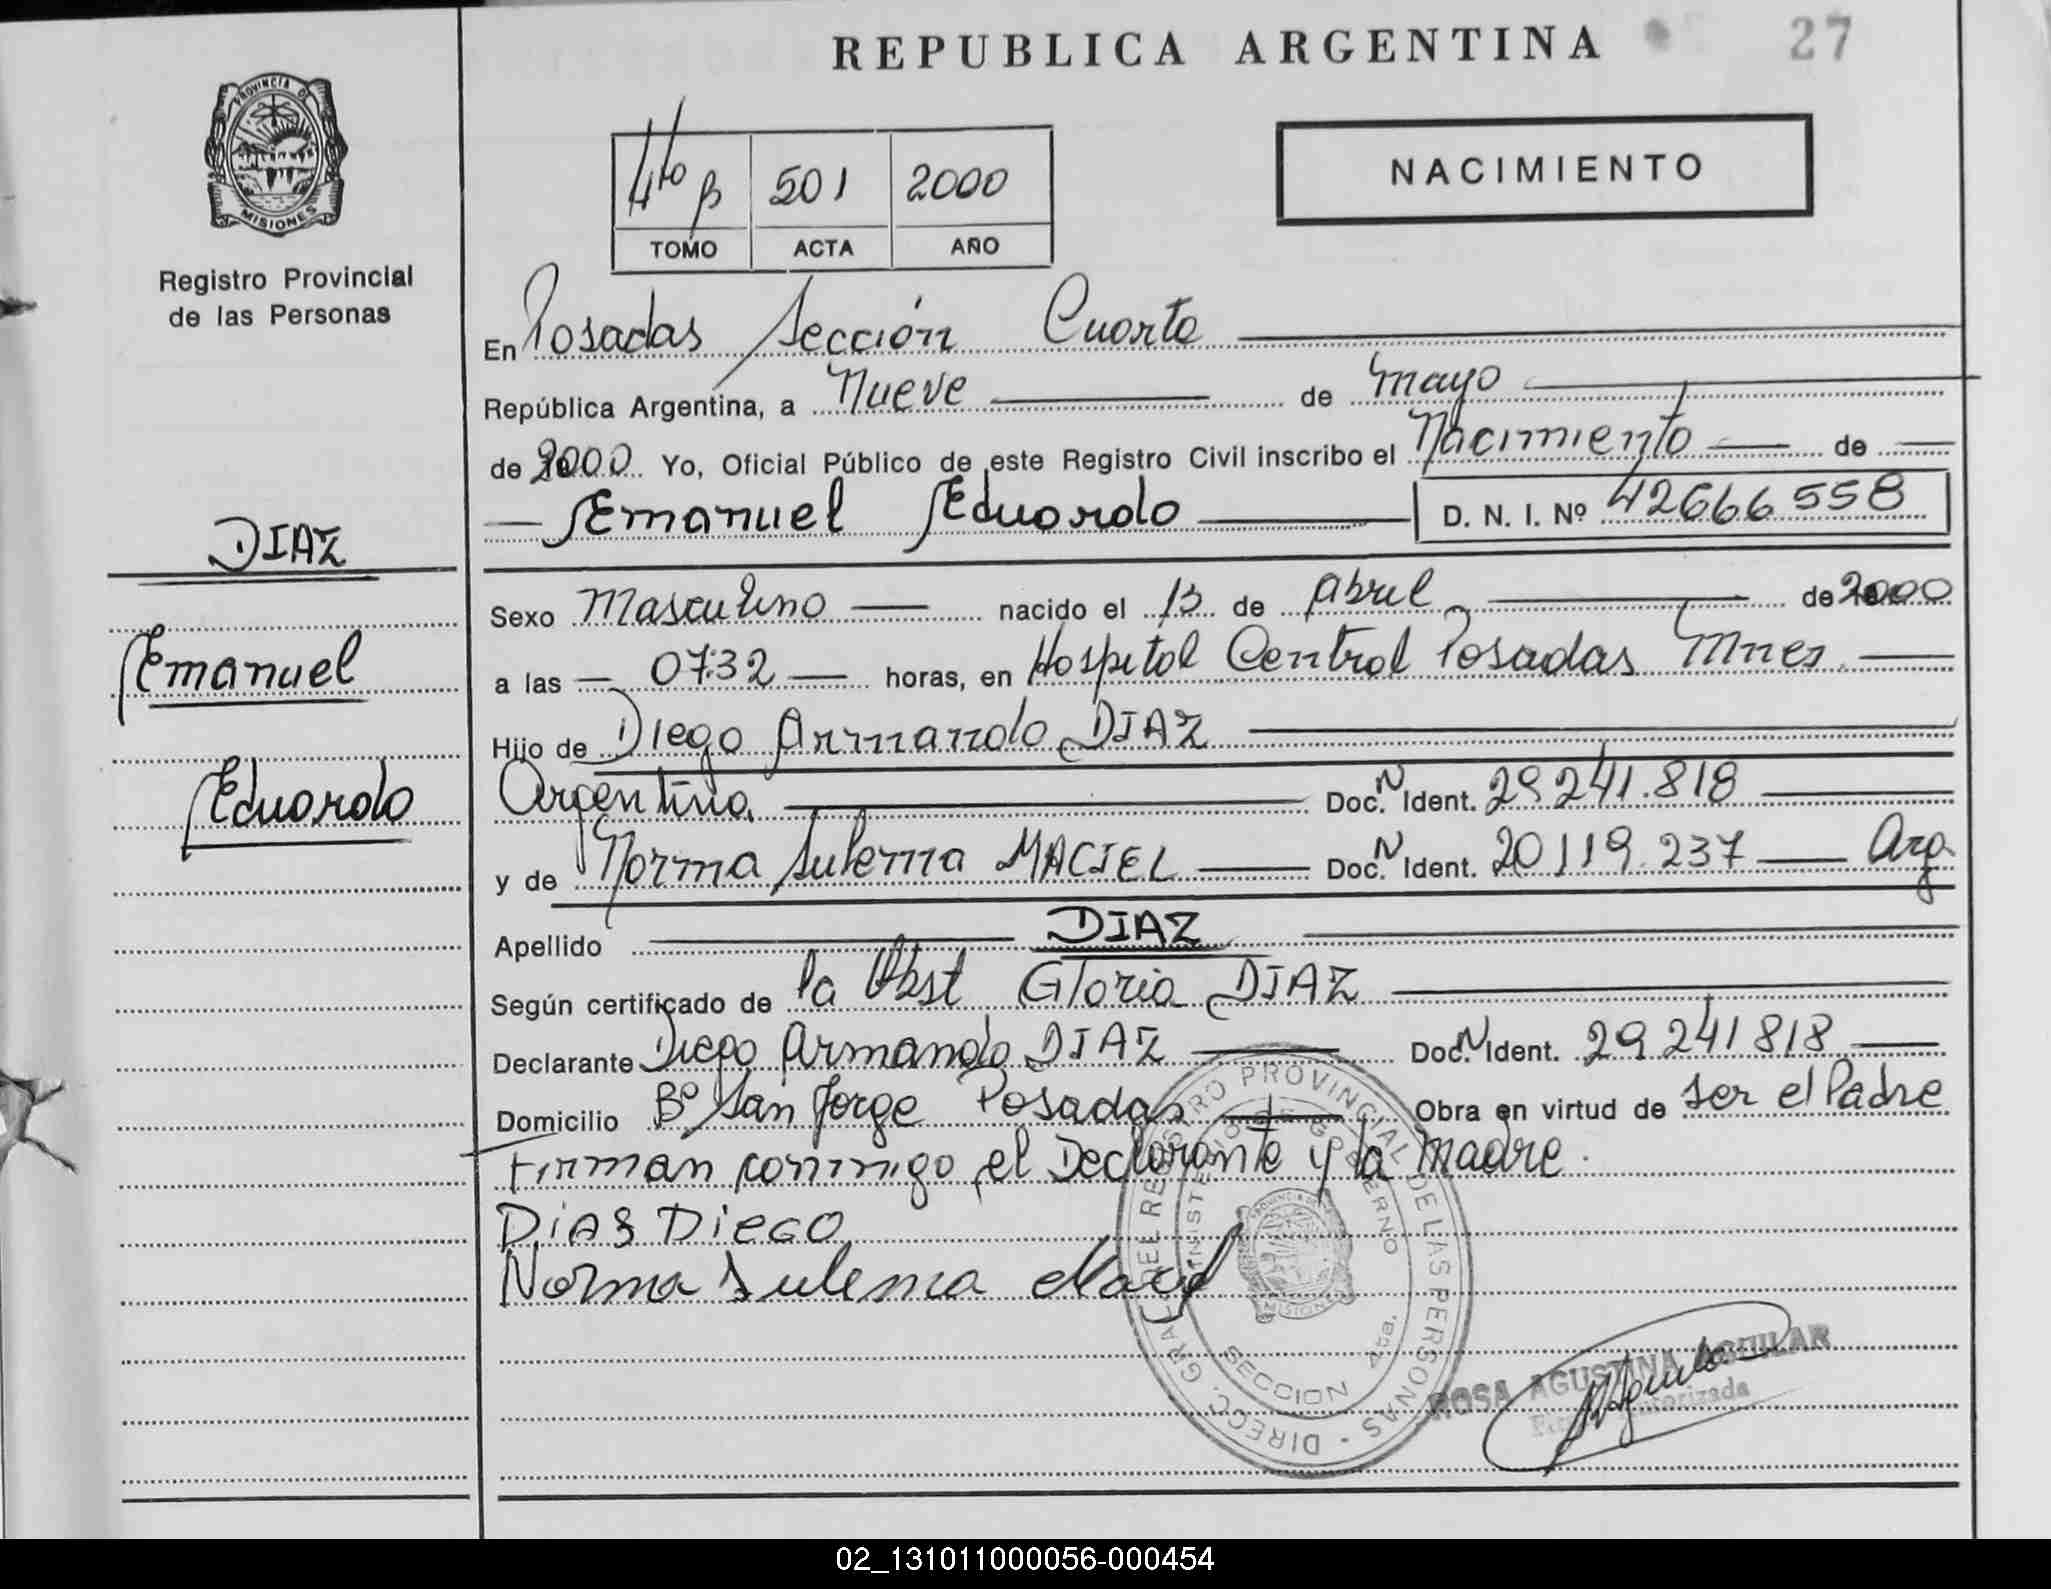 REPUBLICA ARGENTINA
27
PROVINCIA DE
MISIONES
Registro Provincial
de las Personas
4to B 501 2000
TOMO ACTA AÑO
NACIMIENTO
En Posadas Sección Cuarta
República Argentina, a Nueve de mayo
de 2000 Yo, Oficial Público de este Registro Civil inscribo el Nacimiento de
Emanuel Eduardo D. N. I. Nº 42666558
DIAZ
Emanuel
Eduardo
Sexo Masculino nacido el 13 de Abril de 2000
a las 07:32 horas, en Hospital Central Posadas Mnes
Hijo de Diego Armando DIAZ
Argentino Doc. N Ident. 29 241.818
y de Norma Sulema MACIEL Doc. N Ident. 20119.237 Arg
Apellido DIAZ
Según certificado de la Obst Gloria DIAZ
Declarante Diego Armando DIAZ Doc. N Ident. 29 241 818
Domicilio Bº San Jorge Posadas Obra en virtud de ser el Padre
Firman conmigo el Declarante y la madre.
DiAS DiEGO
Norma Sulema Maciel
DIRECC. GRAL. DEL REGISTRO PROVINCIAL DE LAS PERSONAS -
MINISTERIO DE GOBIERNO
MISIONES
SECCION 4ta.
ROSA AGUSTINA AGUILAR
Autorizada
02_131011000056-000454